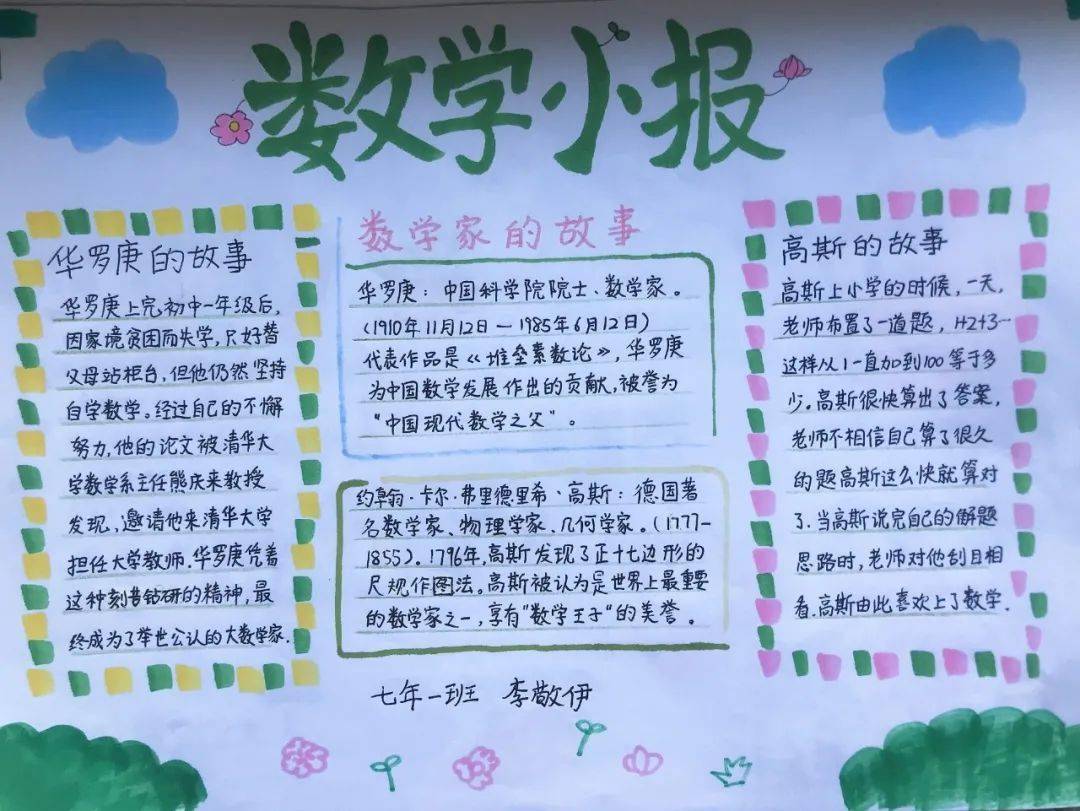 数学小报
华罗庚的故事
华罗庚上完初中一年级后,
因家境贫困而失学,只好替
父母站柜台,但他仍然坚持
自学数学。经过自己的不懈
努力,他的论文被清华大
学数学系主任熊庆来教授
发现,邀请他来清华大学
担任大学教师.华罗庚凭着
这种刻苦钻研的精神,最
终成为了举世公认的大数学家.
数学家的故事
华罗庚:中国科学院院士、数学家。
(1910年11月12日—1985年6月12日)
代表作品是《堆垒素数论》,华罗庚
为中国数学发展作出的贡献,被誉为
“中国现代数学之父”。
约翰·卡尔·弗里德里希·高斯:德国著
名数学家、物理学家、几何学家。(1777-
1855)。1796年,高斯发现了正十七边形的
尺规作图法。高斯被认为是世界上最重要
的数学家之一,享有"数学王子"的美誉。
高斯的故事
高斯上小学的时候,一天,
老师布置了一道题,1+2+3…
这样从1一直加到100等于多
少。高斯很快算出了答案,
老师不相信自己算了很久
的题高斯这么快就算对
了.当高斯说完自己的解题
思路时,老师对他刮目相
看.高斯由此喜欢上了数学.
七年一班 李敬伊